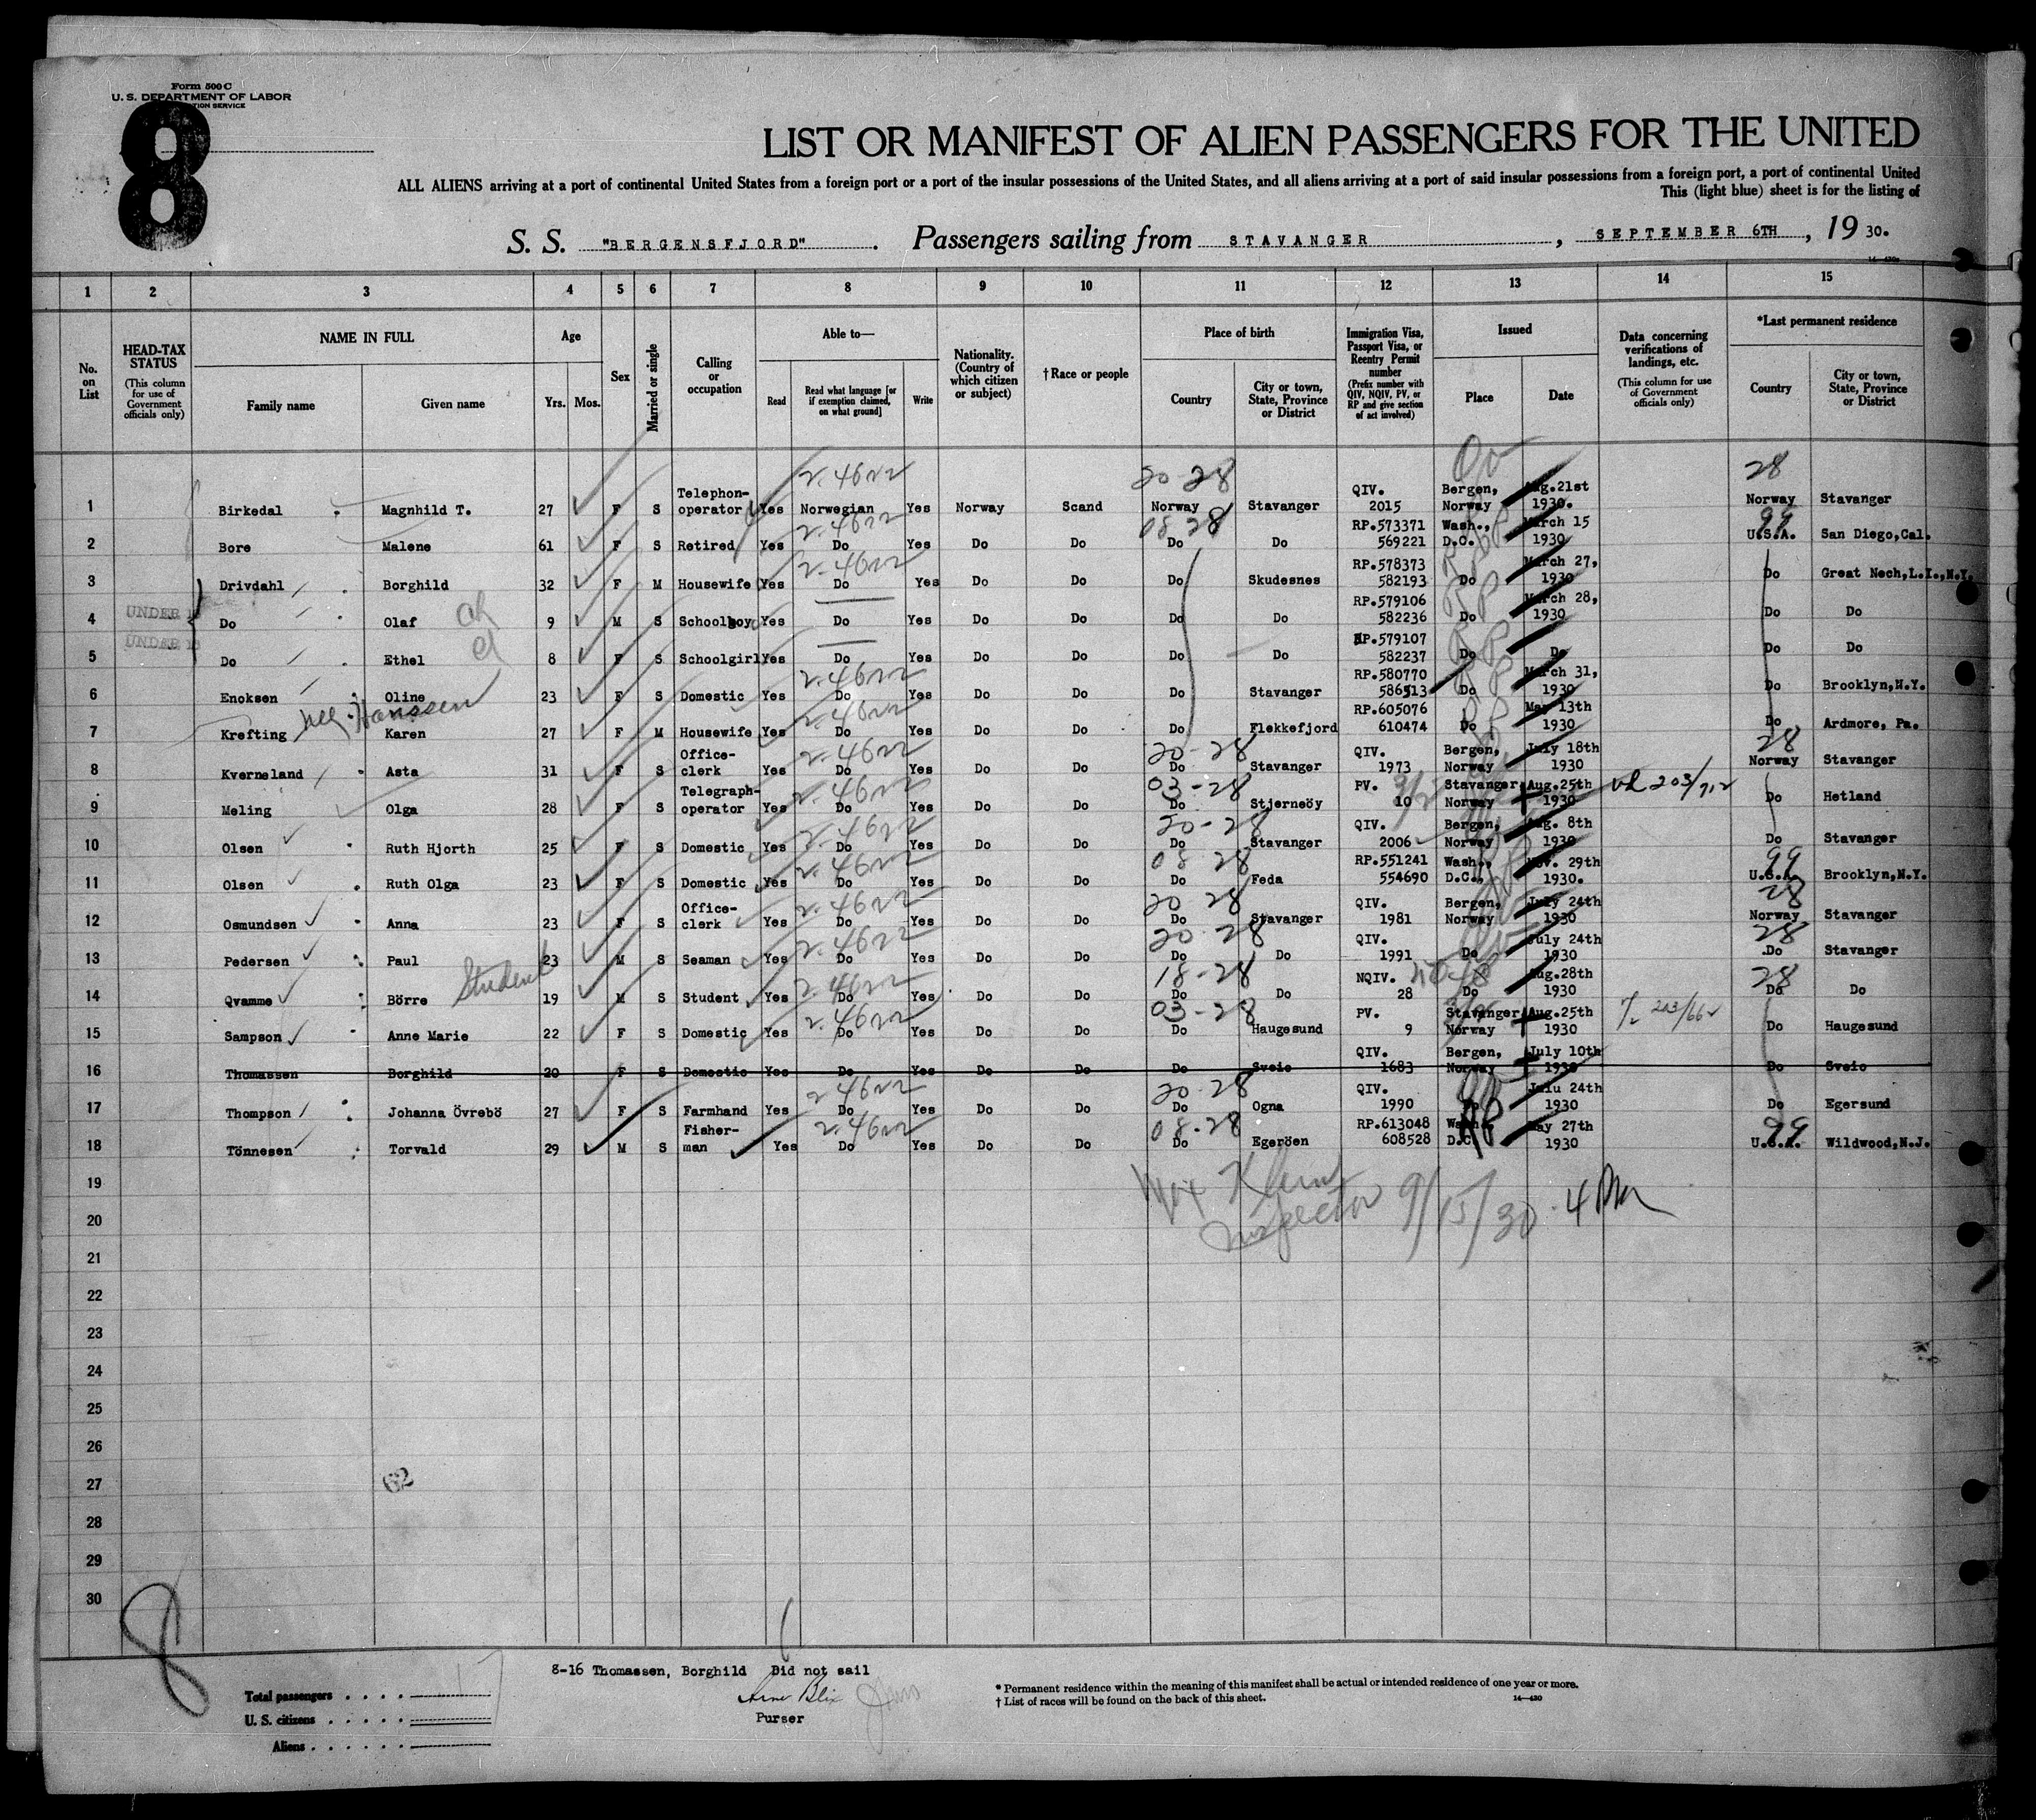 Form 500 C
U. S. DEPARTMENT OF LABOR
8
LIST OR MANIFEST OF ALIEN PASSENGERS FOR THE UNITED
ALL ALIENS arriving at a port of continental United States from a foreign port or a port of the insular possessions of the United States, and all aliens arriving at a port of said insular possessions from a foreign port, a port of continental United
This (light blue) sheet is for the listing of
S. S. "BERGENSFJORD". Passengers sailing from STAVANGER, SEPTEMBER 6TH, 19 30.
1 2 3 4 5 6 7 8 9 10 11 12 13 14 15
No. on List
HEAD-TAX STATUS (This column for use of Government officials only)
NAME IN FULL Family name Given name
Age Yrs. Mos.
Sex
Married or single
Calling or occupation
Able to— Read Read what language [or if exemption claimed, on what ground] Write
Nationality. (Country of which citizen or subject)
†Race or people
Place of birth Country City or town, State, Province or District
Immigration Visa, Passport Visa, or Reentry Permit number (Prefix number with QIV, NQIV, PV, or RP and give section of act involved)
Issued Place Date
Data concerning verifications of landings, etc. (This column for use of Government officials only)
*Last permanent residence Country City or town, State, Province or District
1 Birkedal Magnhild T. 27 F S Telephon-operator Yes Norwegian Yes Norway Scand 20-28 Norway Stavanger QIV. 2015 Bergen, Norway Aug.21st 1930. 28 Norway Stavanger
2 Bore Malene 61 F S Retired Yes Do Yes Do Do 08 28 Do Do RP.573371 569221 Wash., D.C. March 15 1930 99 U.S.A. San Diego,Cal.
3 Drivdahl Borghild 32 F M Housewife Yes Do Yes Do Do Do Skudesnes RP.578373 582193 Do March 27, 1930 Do Great Nech,L.I.,N.Y.
UNDER
4 Do Olaf 9 M S Schoolboy Yes Do Yes Do Do Do Do RP.579106 582236 Do March 28, 1930 Do Do
UNDER
5 Do Ethel 8 F S Schoolgirl Yes Do Yes Do Do Do Do RP.579107 582237 Do Do Do Do
6 Enoksen Oline 23 F S Domestic Yes Do Yes Do Do Do Stavanger RP.580770 586513 Do March 31, 1930 Do Brooklyn,N.Y.
Hanssen
7 Krefting Karen 27 F M Housewife Yes Do Yes Do Do Do Flekkefjord RP.605076 610474 Do May 13th 1930 Do Ardmore, Pa.
8 Kverneland Asta 31 F S Office-clerk Yes Do Yes Do Do 20-28 Do Stavanger QIV. 1973 Bergen, Norway July 18th 1930 28 Norway Stavanger
9 Meling Olga 28 F S Telegraph-operator Yes Do Yes Do Do 03-28 Do Stjerneöy PV. 10 Stavanger Norway Aug.25th 1930 Do Hetland
10 Olsen Ruth Hjorth 25 F S Domestic Yes Do Yes Do Do 20-28 Do Stavanger QIV. 2006 Bergen, Norway Aug. 8th 1930 Do Stavanger
11 Olsen Ruth Olga 23 F S Domestic Yes Do Yes Do Do 08 28 Do Feda RP.551241 554690 Wash., D.C., Nov. 29th 1930. 99 U.S.A. Brooklyn,N.Y.
12 Osmundsen Anna 23 F S Office-clerk Yes Do Yes Do Do 20 28 Do Stavanger QIV. 1981 Bergen, Norway July 24th 1930 28 Norway Stavanger
13 Pedersen Paul 23 M S Seaman Yes Do Yes Do Do 20 28 Do Do QIV. 1991 Do July 24th 1930 28 Do Stavanger
14 Qvamme Börre Student 19 M S Student Yes Do Yes Do Do 18-28 Do Do NQIV. 28 Do Aug.28th 1930 28 Do Do
15 Sampson Anne Marie 22 F S Domestic Yes Do Yes Do Do 03-28 Do Haugesund PV. 9 Stavanger Norway Aug.25th 1930 Do Haugesund
16 Thomassen Borghild 20 F S Domestic Yes Do Yes Do Do Do Sveio QIV. 1683 Bergen, Norway July 10th 1930 Do Sveio
17 Thompson Johanna Övrebö 27 F S Farmhand Yes Do Yes Do Do 20-28 Do Ogna QIV. 1990 Do Julu 24th 1930 Do Egersund
18 Tönnesen Torvald 29 M S Fisher-man Yes Do Yes Do Do 08-28 Do Egeröen RP.613048 608528 Wash., D.C. May 27th 1930 99 U.S.A. Wildwood,N.J.
19
Klein
20
Inspector 9/15/30
21
22
23
24
25
26
27
62
28
29
30
8
8-16 Thomassen, Borghild Did not sail
Arne Blix
Purser
Total passengers . . . . 17
U. S. citizens . . . . .
Aliens . . . . . .
* Permanent residence within the meaning of this manifest shall be actual or intended residence of one year or more.
† List of races will be found on the back of this sheet.
14—430